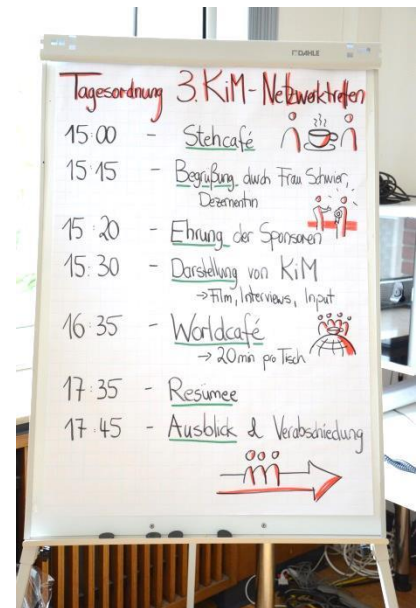 DAHLE
Tagesordnung 3. KiM-Netzwerktreffen
15:00 - Stehcafé
15:15 - Begrüßung durch Frau Schwier,
Dezernentin
15:20 - Ehrung der Sponsoren
15:30 - Darstellung von KiM
→ Film, Interviews, Input
16:35 - Worldcafé
→ 20min pro Tisch
17:35 - Resümee
17:45 - Ausblick & Verabschiedung